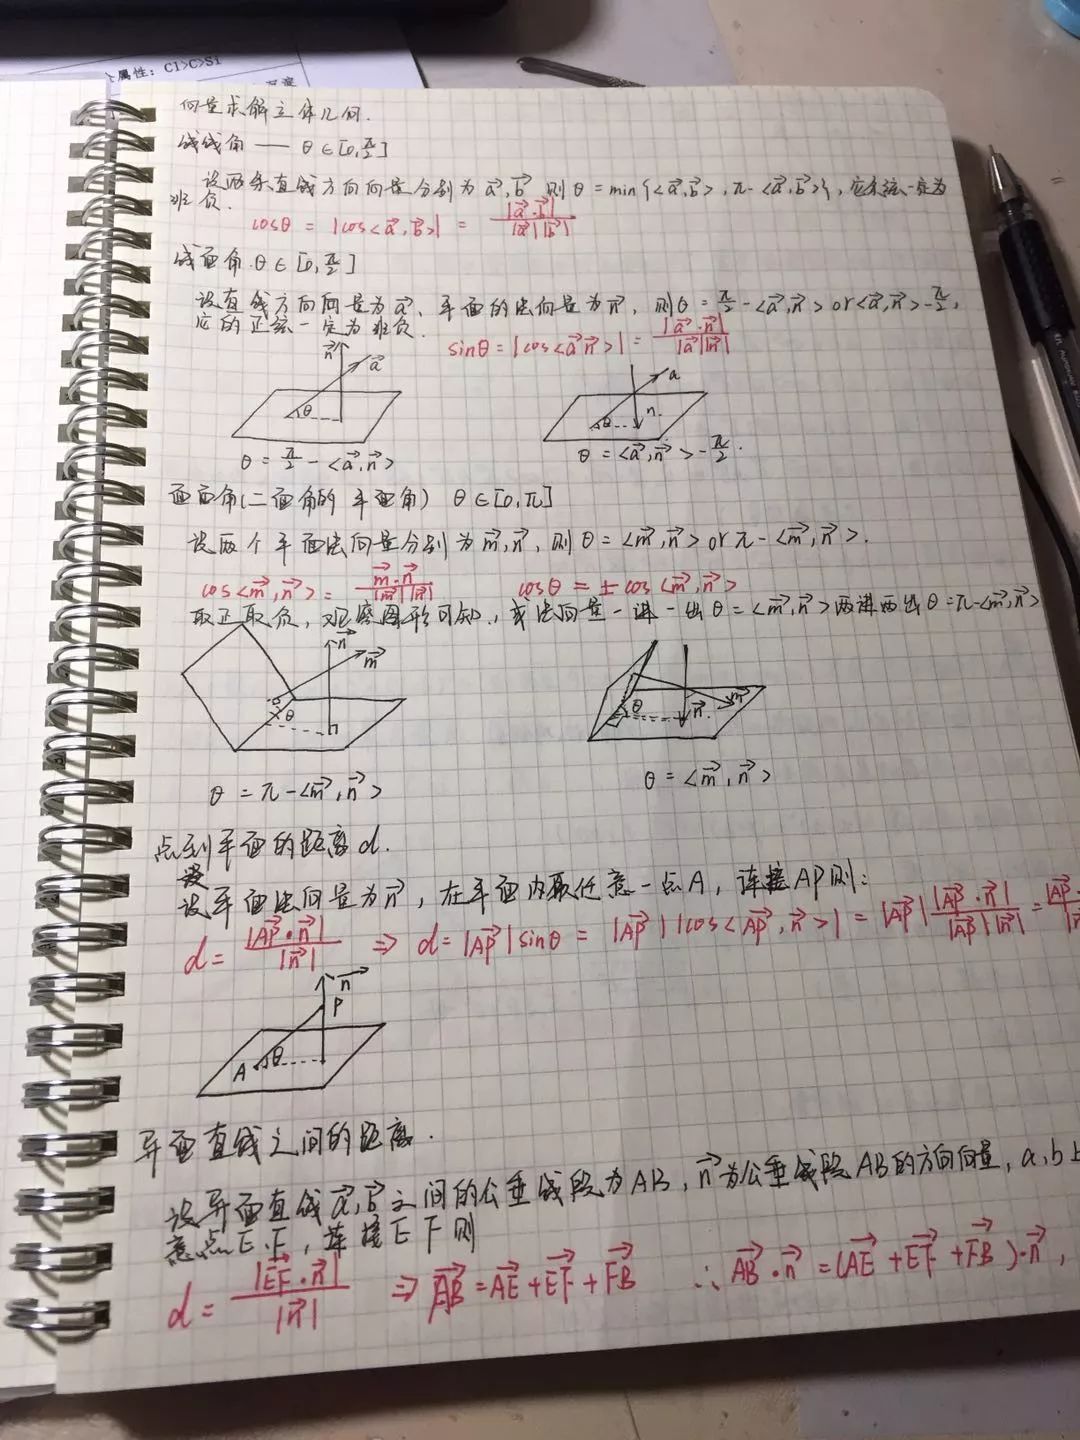 属性：Cl>C>Si
向量求解立体几何.
线线角 —— θ∈[0,π/2]
设两条直线方向向量分别为 a⃗,b⃗ 则 θ = min{<a⃗,b⃗>, π-<a⃗,b⃗>}, 它余弦一定为
非负.
cosθ = |cos<a⃗,b⃗>| = |a⃗·b⃗| / |a⃗||b⃗|
线面角.θ∈[0,π/2]
设直线方向向量为 a⃗, 平面的法向量为 n⃗, 则θ = π/2 - <a⃗,n⃗> or <a⃗,n⃗> - π/2,
它的正弦一定为非负.
sinθ = |cos<a⃗ n⃗>| = |a⃗·n⃗| / |a⃗||n⃗|
n⃗ a⃗ θ
a n. θ
θ = π/2 - <a⃗,n⃗>
θ = <a⃗,n⃗> - π/2.
面面角(二面角的平面角) θ∈[0,π]
设两个平面法向量分别为 m⃗,n⃗, 则 θ = <m⃗,n⃗> or π - <m⃗,n⃗>.
cos<m⃗,n⃗> = m⃗·n⃗ / |m⃗||n⃗| cosθ = ± cos<m⃗,n⃗>
取正取负, 观察图形可知, 或法向量一进一出 θ = <m⃗,n⃗> 两进两出 θ = π-<m⃗,n⃗>
n⃗ m⃗ θ
θ n⃗. m⃗
θ = π - <m⃗,n⃗>
θ = <m⃗,n⃗>
点到平面的距离 d.
设平面法向量为 n⃗, 在平面内取任意一点A, 连接AP则:
d = |AP⃗·n⃗| / |n⃗| ⇒ d = |AP⃗|sinθ = |AP⃗||cos<AP⃗,n⃗>| = |AP⃗| |AP⃗·n⃗| / |AP⃗||n⃗| =
n⃗
P
A θ
异面直线之间的距离.
设异面直线 a⃗,b⃗ 之间的公垂线段为 AB, n⃗ 为公垂线段 AB 的方向向量, a,b上
意点E.F, 连接EF则
d = |EF⃗·n⃗| / |n⃗| ⇒ AB⃗ = AE⃗ + EF⃗ + FB⃗ ∴ AB⃗·n⃗ = (AE⃗ + EF⃗ + FB⃗)·n⃗,